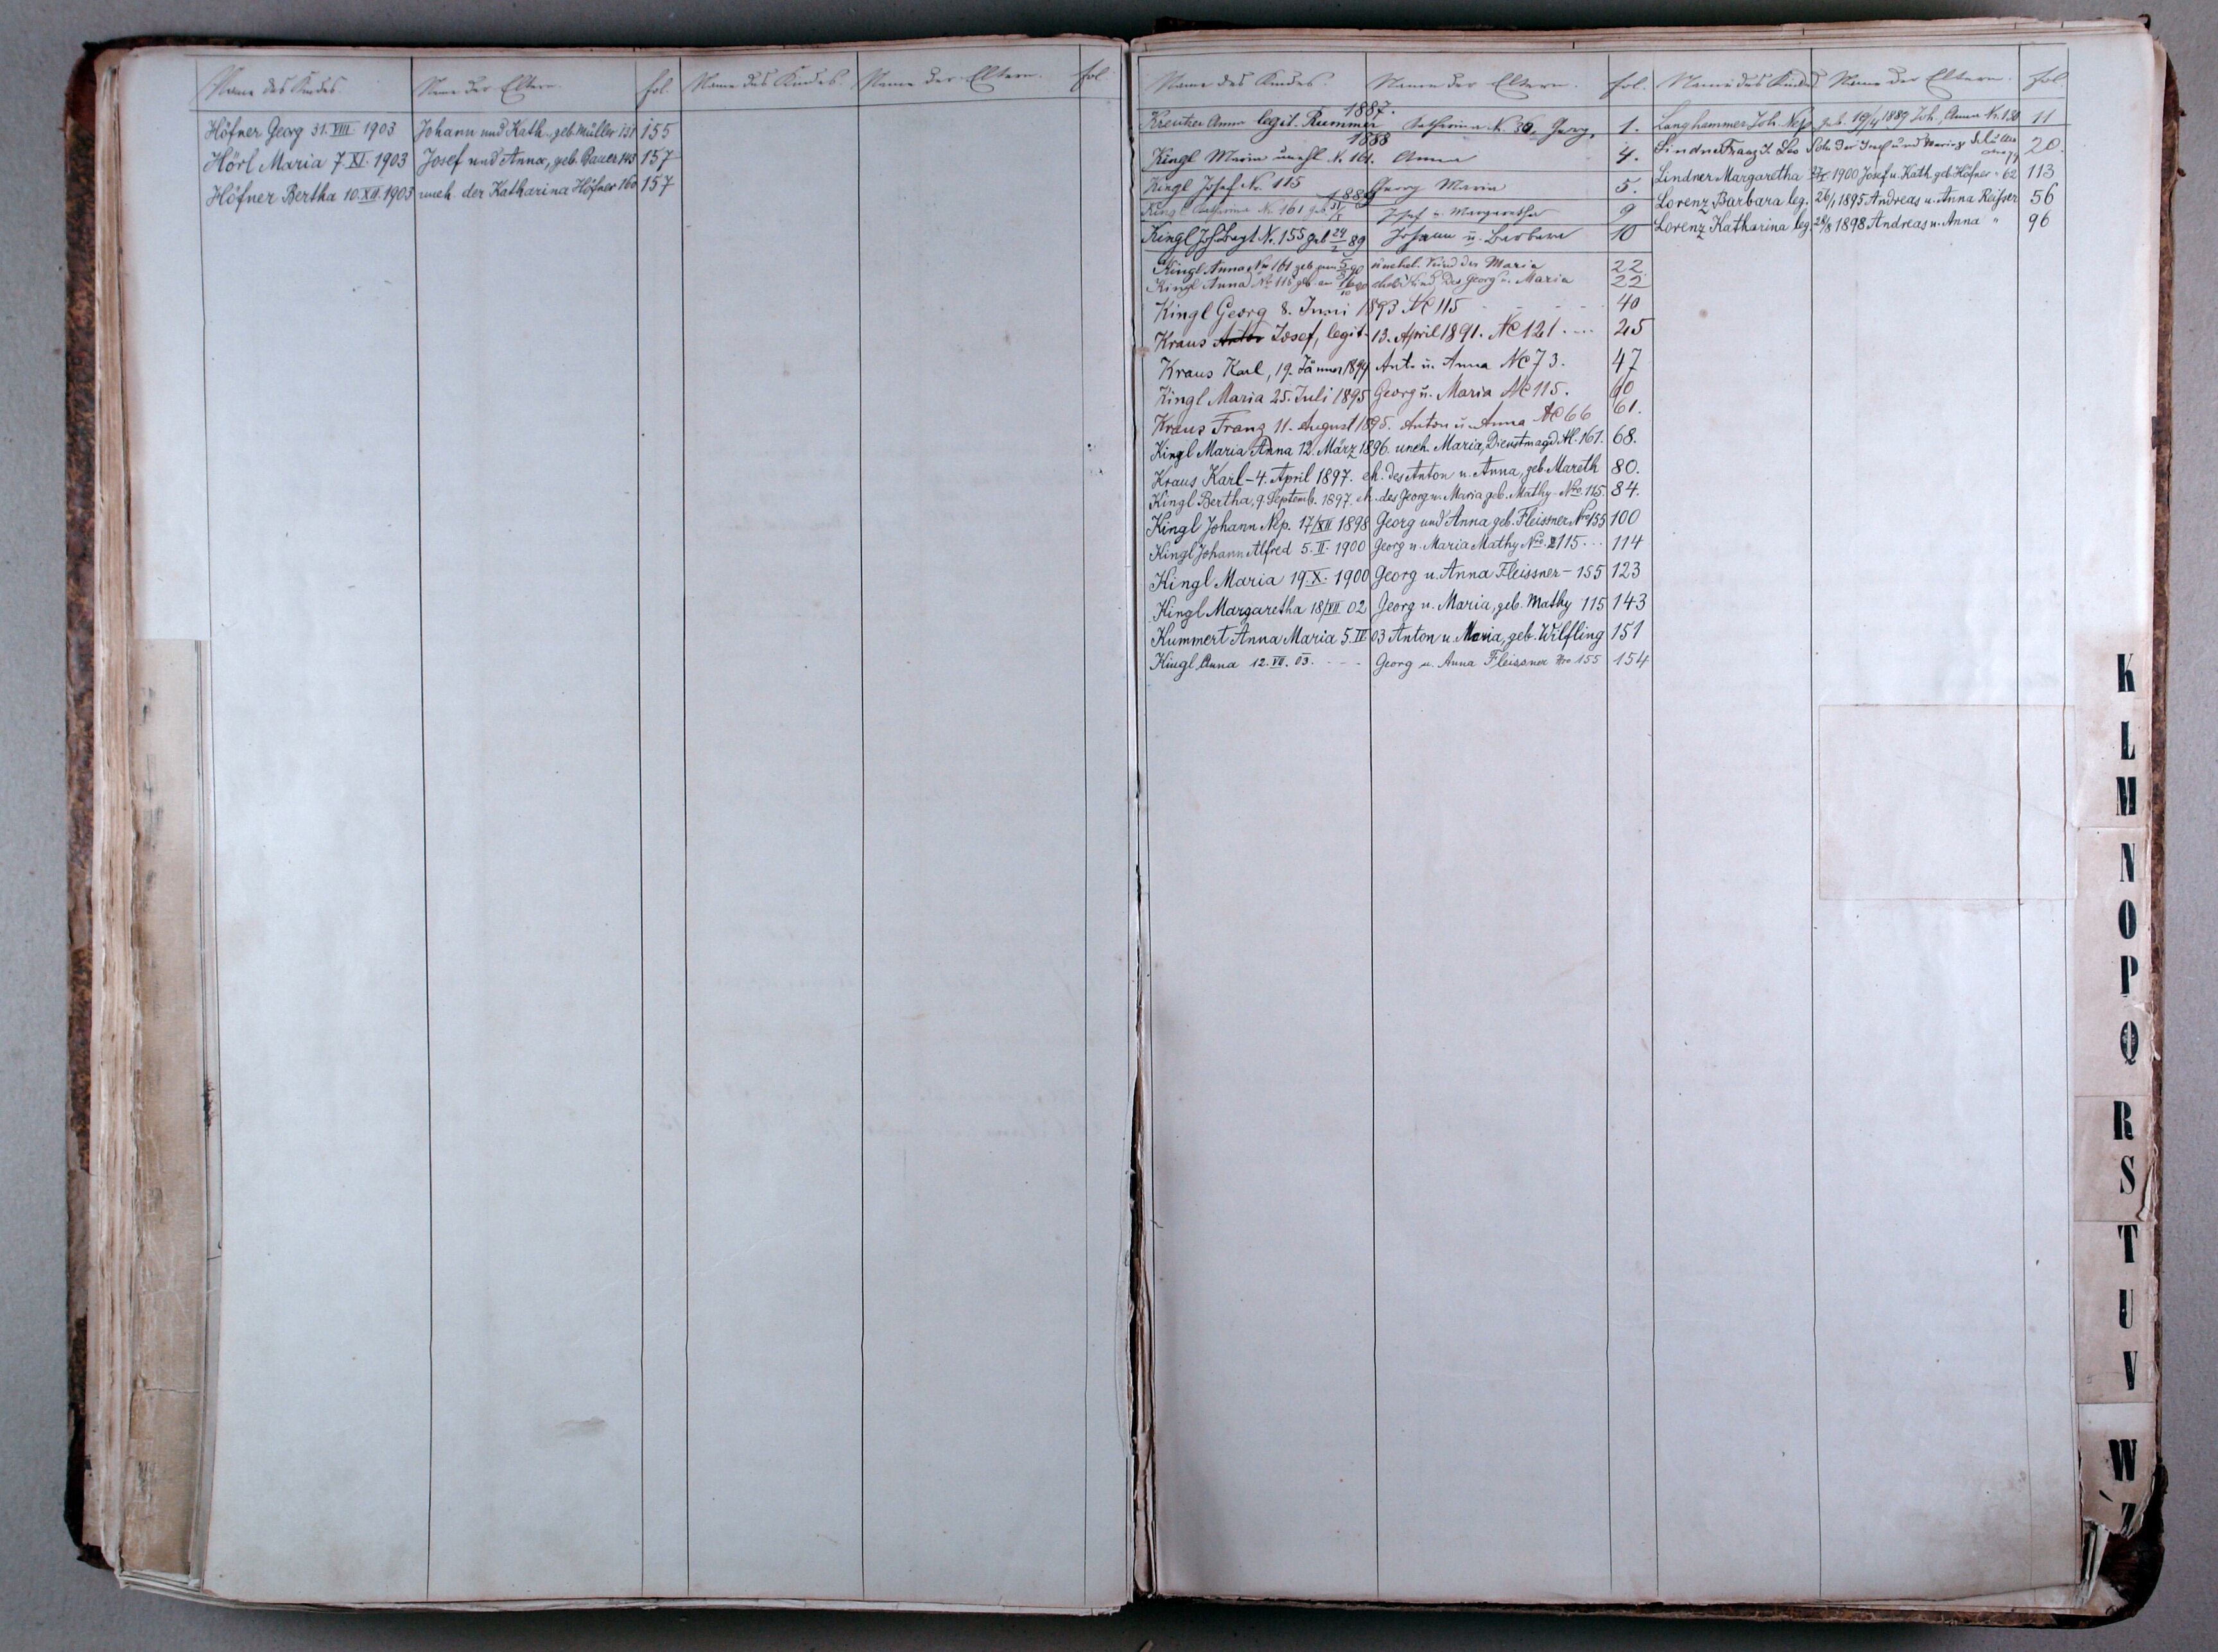 Name des Kindes. Name der Eltern. fol. Name des Kindes. Name der Eltern. fol.
Höfner Georg 31. VIII 1903 Johann und Kath. geb. Müller 131 155
Hörl Maria 7. XI. 1903 Josef und Anna, geb. Bauer 143 157
Höfner Bertha 10. XII. 1903 uneh. der Katharina Höfner 160 157
Name des Kindes. Name der Eltern. fol.
1887.
Kreutzer Anna legit. Rummer Katharina N. 36, Georg, 1.
1888
Kingl Maria unehl. N. 161. Anna 4.
Kingl Josef Nr. 115 Georg Maria 5.
1889
Kingl Katharina Nr. 161 geb. Josef u. Margaretha 9
Kingl Joh. Nr. 155 geb 24/2 89 Johann u. Barbara 10
Kingl Anna Nro 161 geb. unehel. Kind der Maria 22.
Kingl Anna No 115 geb. am Kind des Georg u. Maria 22
Kingl Georg 8. Juni 1893 Nc 115 40
Kraus Anton Josef, legit. 13. April 1891. Nc 121 .... 25
Kraus Karl, 19. Jänner 1894 Ant. u. Anna Nc 73. 47
Kingl Maria 25. Juli 1895 Georg u. Maria Nc 115. 60
Kraus Franz 11. August 1895. Anton u. Anna Nc 66 61.
Kingl Maria Anna 12. März 1896. uneh. Maria, Dienstmagd N. 161. 68.
Kraus Karl - 4. April 1897. eh. des Anton u. Anna, geb. Mareth 80.
Kingl Bertha, 9. Septemb. 1897. eh. des Georg u. Maria geb. Mathy - Nro. 115. 84.
Kingl Johann Nep. 17/XII 1898 Georg und Anna geb. Fleissner Nro 155 100
Kingl Johann Alfred 5. II. 1900 Georg u. Maria Mathy Nro. 115 ... 114
Kingl Maria 19. X. 1900 Georg u. Anna Fleissner - 155 123
Kingl Margaretha 18/VII 02 Georg u. Maria, geb. Mathy 115 143
Kummert Anna Maria 5. IV 03 Anton u. Maria, geb. Wilfling 151
Kingl Anna 12. VII. 03. - - - Georg u. Anna Fleissner Nro 155 154
Name des Kindes Name der Eltern. fol.
Langhammer Joh. Nep. geb. 19/4 1889 Joh., Anna Nr. 120 11
Lindner Franz J. Leo Sohn der Josef und Maria 20.
Lindner Margaretha 1900 Josef u. Kath. geb. Höfner - 62 113
Lorenz Barbara leg. 26/1 1895 Andreas u. Anna Reisner 56
Lorenz Katharina leg. 28/8 1898 Andreas u. Anna " 96
K
L
M
N
O
P
Q
R
S
T
U
V
W
Z